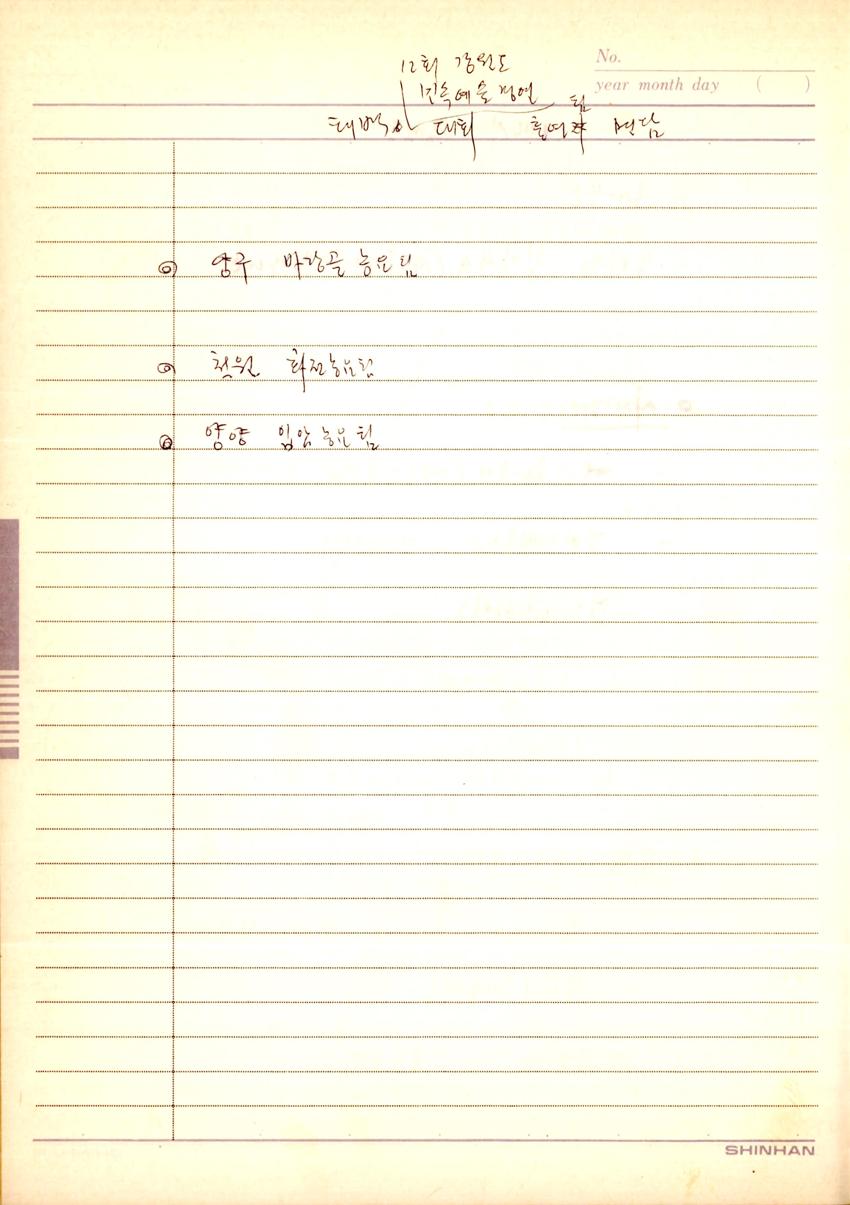 No.
year month day ( )
12회 강원도
민속예술경연 팀
태백시 대회 출연자 면담
◎ 양구 바랑골 농요팀
◎ 철원 화전농요팀
◎ 양양 입암농요팀
SHINHAN